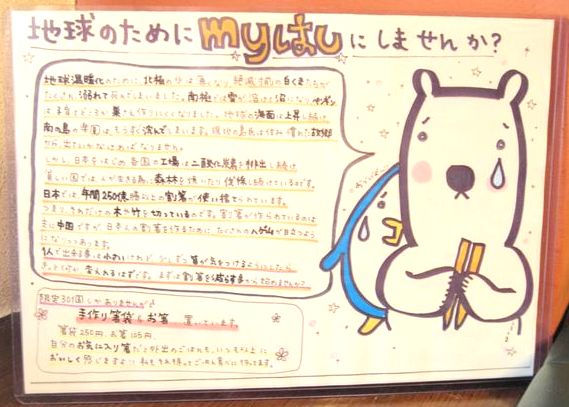 地球のために myはし にしませんか?
地球温暖化のために、北極の氷は 絶滅 白くまたちが
たくさん溺れて死んでしまいました。南極では雪が溶けて沼になり、ペンギン
は子育てどころか巣さえ作りにくくなりました。地球の海面は上昇し続け
南の島の楽園は、もうすぐ沈んでしまいます。現地の島民は住み慣れた故郷
から、出ていかなければなりません。
しかし、日本をはじめ各国の工場は二酸化炭素を排出し続け
貧しい国では人が生きる為に森林を焼いたり伐採し続けているのです。
日本では年間250億膳以上の割箸が使い捨てられています。
つまり、それだけの木や竹を切っているのです。割箸が作られているのは
主に中国ですが日本人の割箸を作るために、たくさんのハゲ山が目立つよう
になりつつあります。
1人で出来る事は小さいけれど、少しずつ皆が気をつけるようにしたら
きっと 変えれるはずです。まずは割箸を減らす事から始めませんか?
限定30個しかありませんが
手作り箸袋とお箸 置いています。
箸袋250円、お箸105円。
自分のお気に入り箸だと外出のごはんも、いつも以上に
おいしく感じますよ!